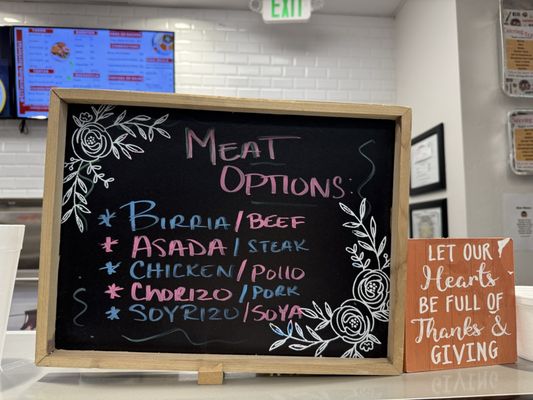 EXIT
MEAT
OPTIONS:
* BIRRIA/BEEF
* ASADA/STEAK
* CHICKEN/POLLO
* CHORIZO/PORK
* SOYRIZO/SOYA
LET OUR
Hearts
BE FULL OF
Thanks &
GIVING